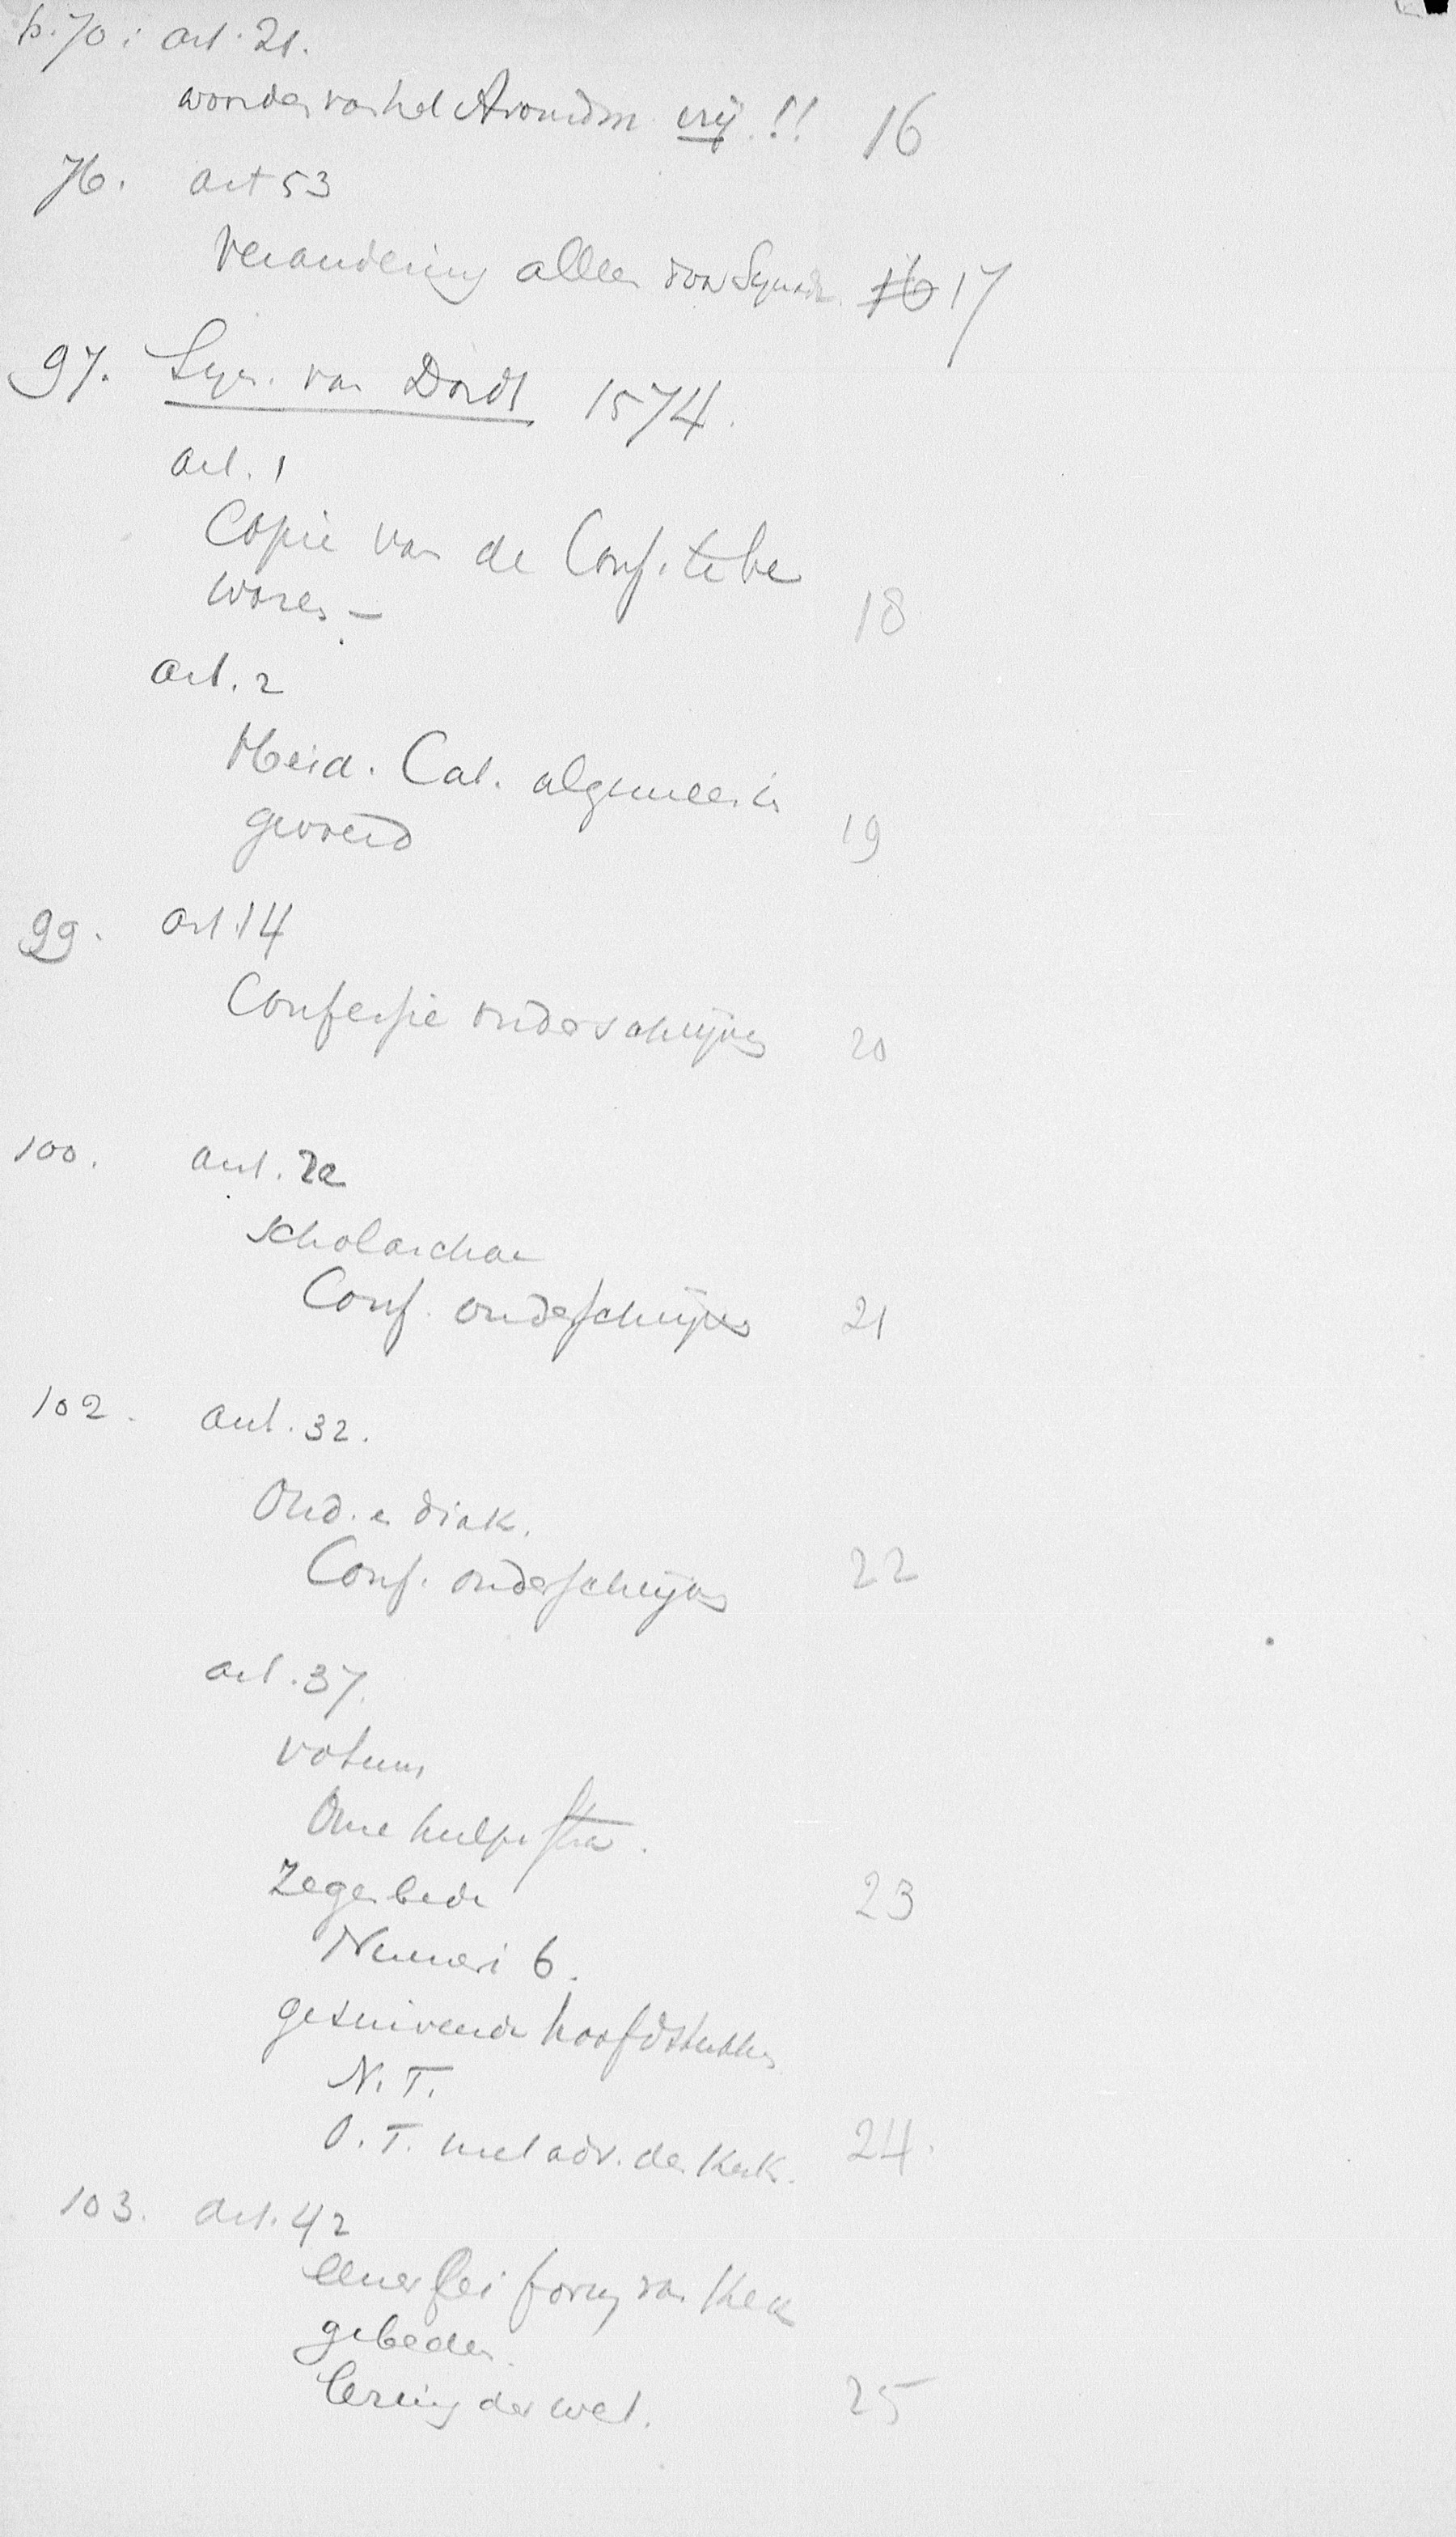 p. 70: art. 21.
woorden van het Avondm vrij !! 16
76. art 53
verandering alleen door Synode. 16 17
97. Syn. van Dordt 1574.
art. 1
Copie van de Conf. te be
waren - 18
art. 2
Heid. Cat. algemeen in
gevoerd 19
99. art. 14
Confessie onderschrijven 20
100. art. 22
scholarchae
Conf. onderschrijven 21
102. art. 32.
Oud. en diak.
Conf. onderschrijven 22
art. 37.
votum
Onse hulpe
Zegenbede 23
Numeri 6.
hoofdstukken
N. T.
O. T. met adv. der Kerk. 24.
103. art. 42
eenerlei form van Kerk
gebeden.
lezing der wet. 25